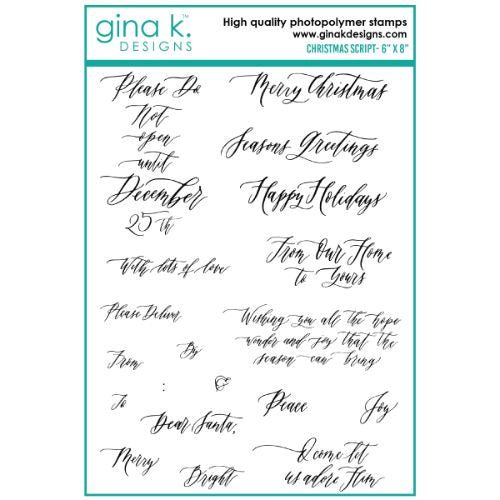 gina k.
DESIGNS
High quality photopolymer stamps
www.ginakdesigns.com
CHRISTMAS SCRIPT- 6" X 8"
Please Do
Not
open
until
December
25th
Merry Christmas
Seasons Greetings
Happy Holidays
From Our Home
to Yours
With lots of love
Please Deliver
By
From
:
To
Wishing you all the hope
wonder and joy that the
season can bring
Dear Santa,
Peace
Joy
Merry
Bright
& come let
us adore Him